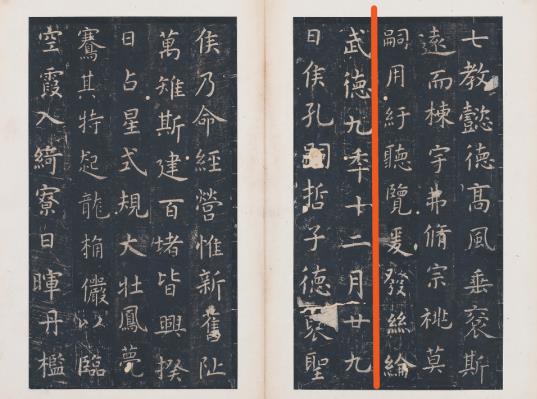 七教懿德高風垂裕斯
遠而棟宇弗脩宗祧莫
嗣用紆聽覽爰發絲綸
武德九年十二月廿九
日侯孔嗣哲子德褒聖
侯乃命經營惟新舊阯
萬雉斯建百堵皆興揆
日占星式規大壯鳳甍
騫其特起龍桷儼以臨
空霞入綺寮日暉丹檻